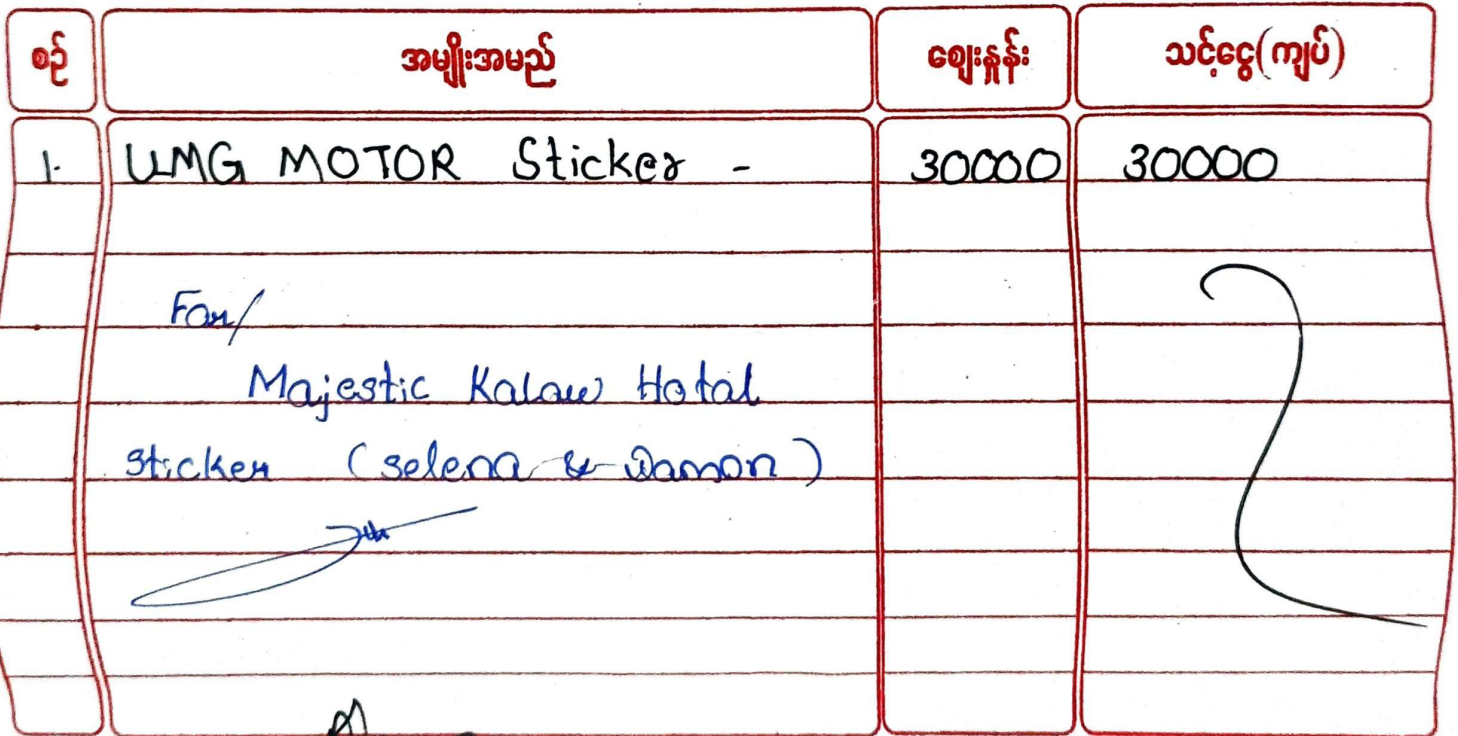 စဉ် အမျိုးအမည် ဈေးနှုန်း သင့်ငွေ(ကျပ်)
1. UMG MOTOR Sticker - 30000 30000
For/
Majestic Kalaw Hotal
sticker (selena & Damon)